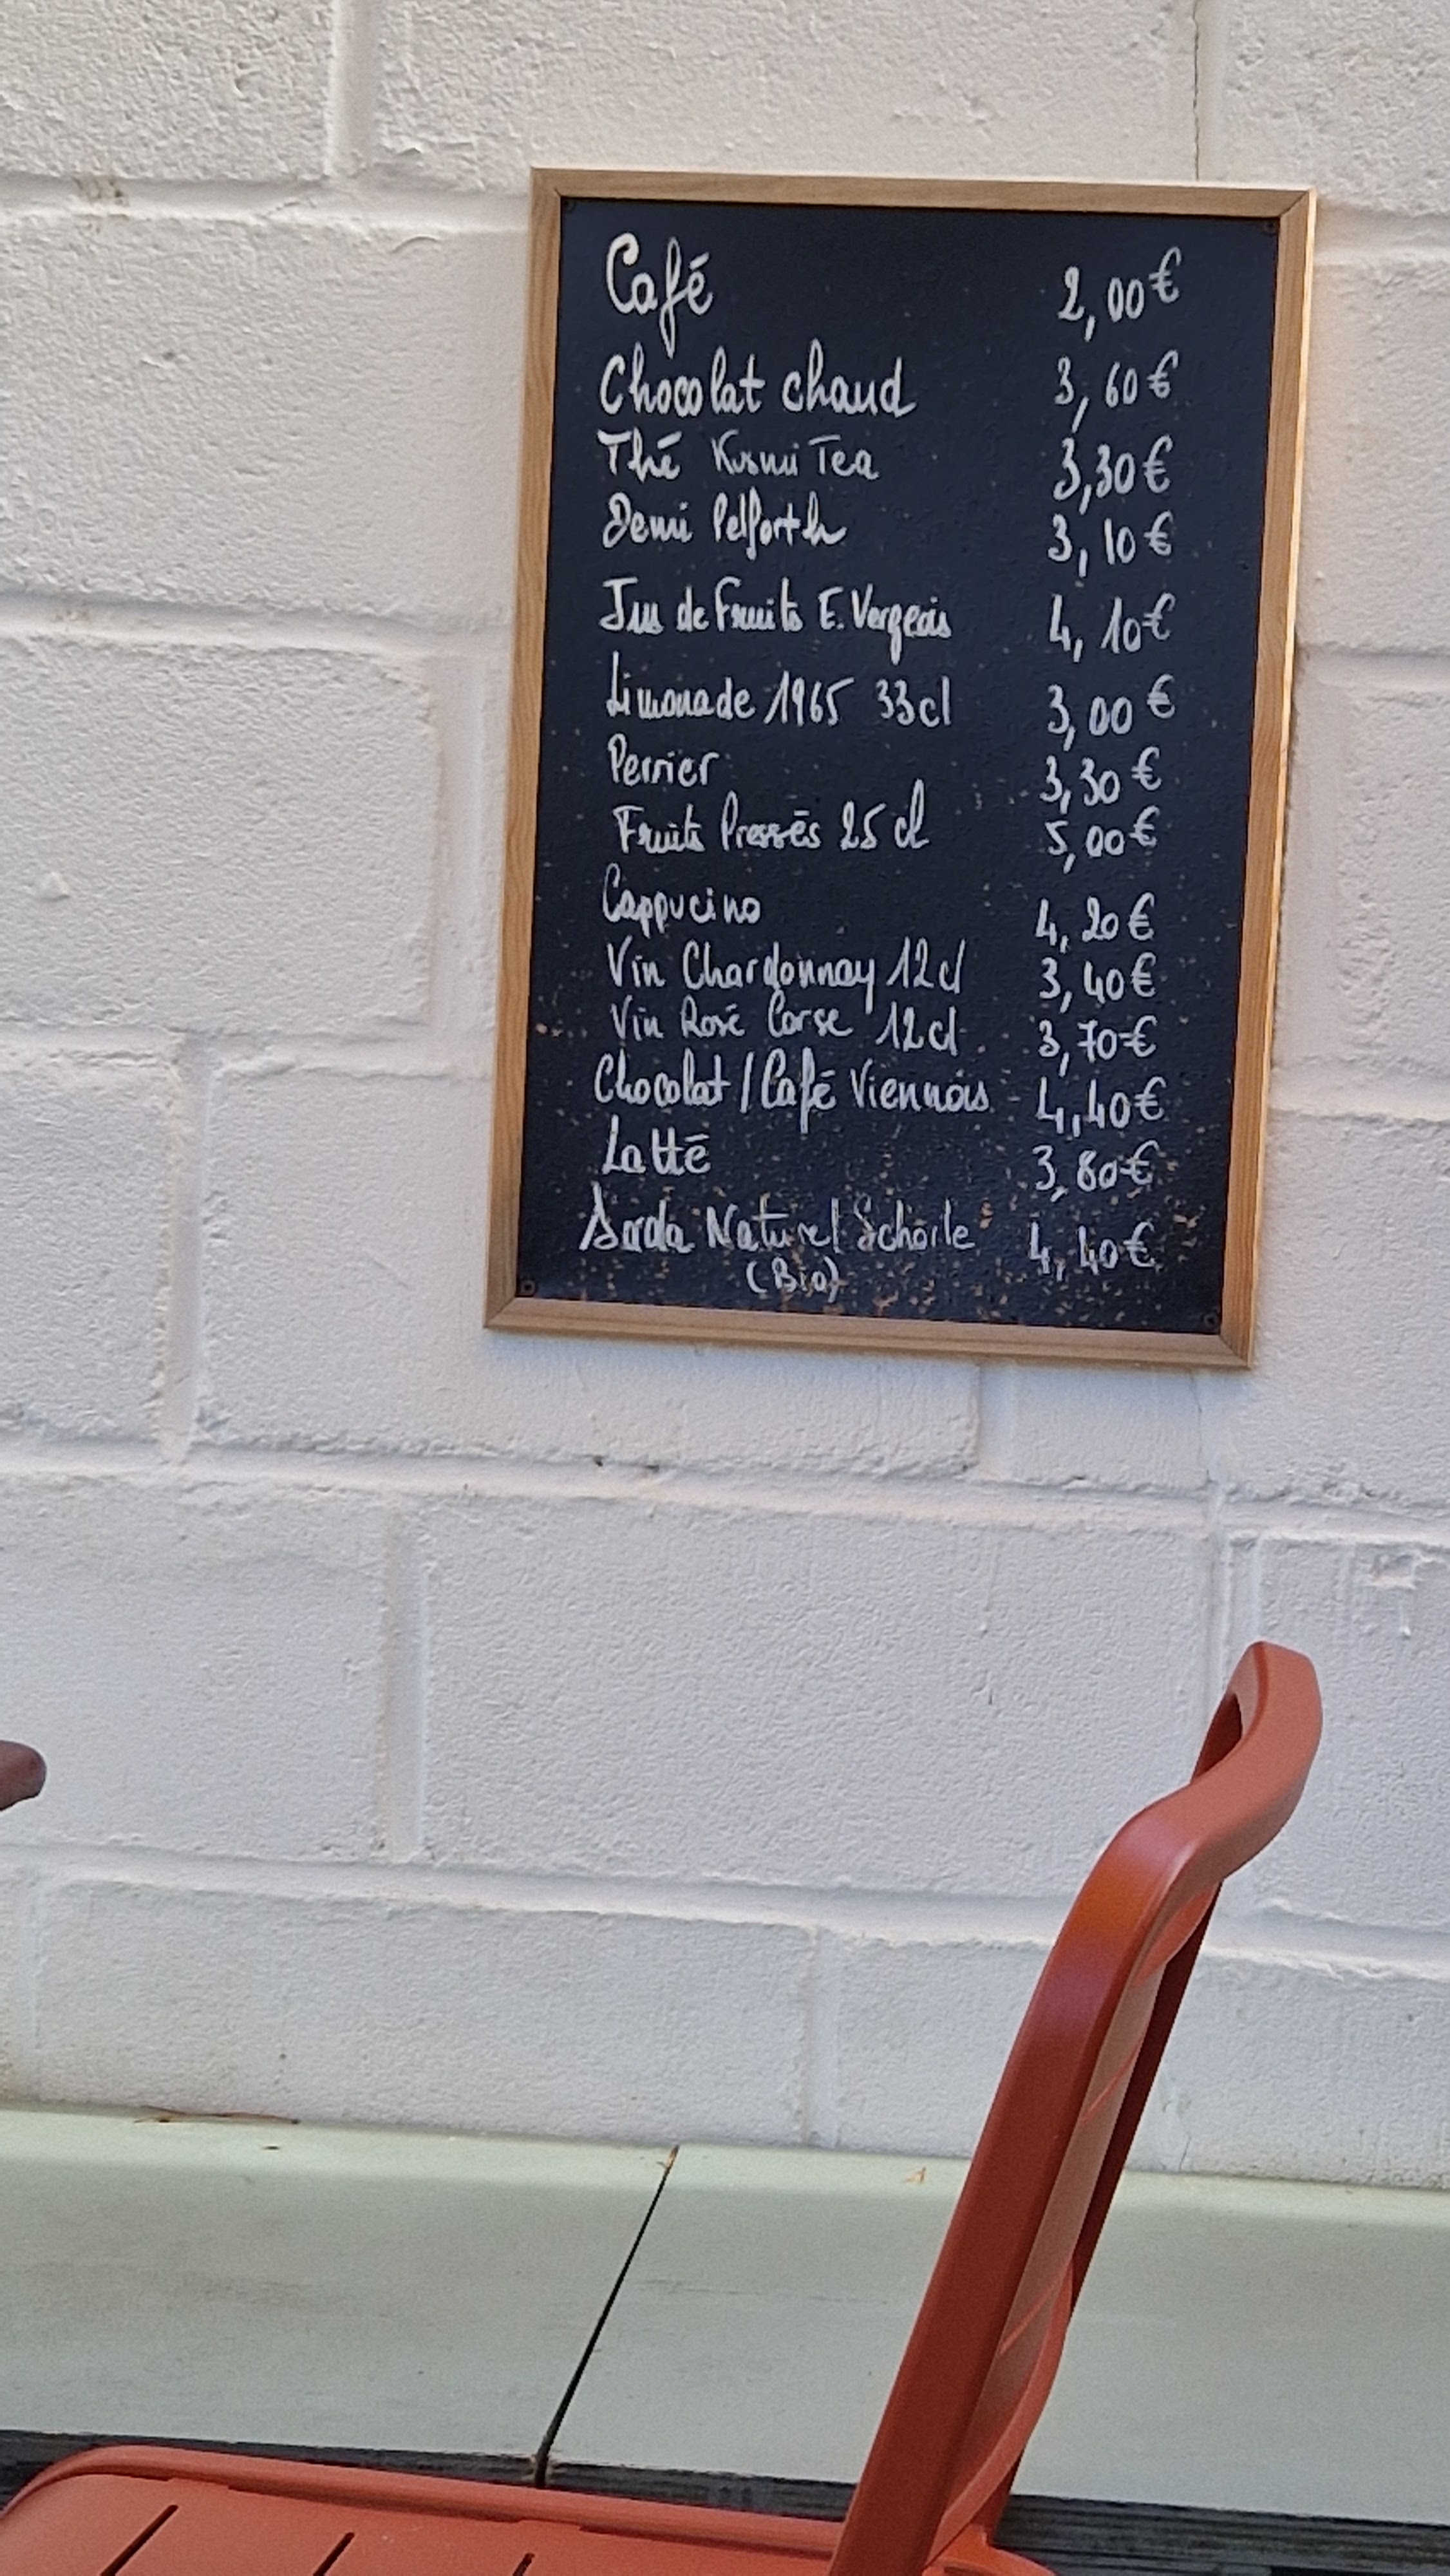 Café 2,00€
Chocolat chaud 3,60€
Thé Kusmi Tea 3,30€
Demi Pelforth 3,10€
Jus de Fruits E. Vergeois 4,10€
Limonade 1965 33cl 3,00€
Perrier 3,30€
Fruits Pressés 25 cl 5,00€
Cappucino 4,20€
Vin Chardonnay 12cl 3,40€
Vin Rosé Corse 12cl 3,70€
Chocolat / Café Viennois 4,40€
Latté 3,80€
Naturel Schorle 4,40€
(Bio)